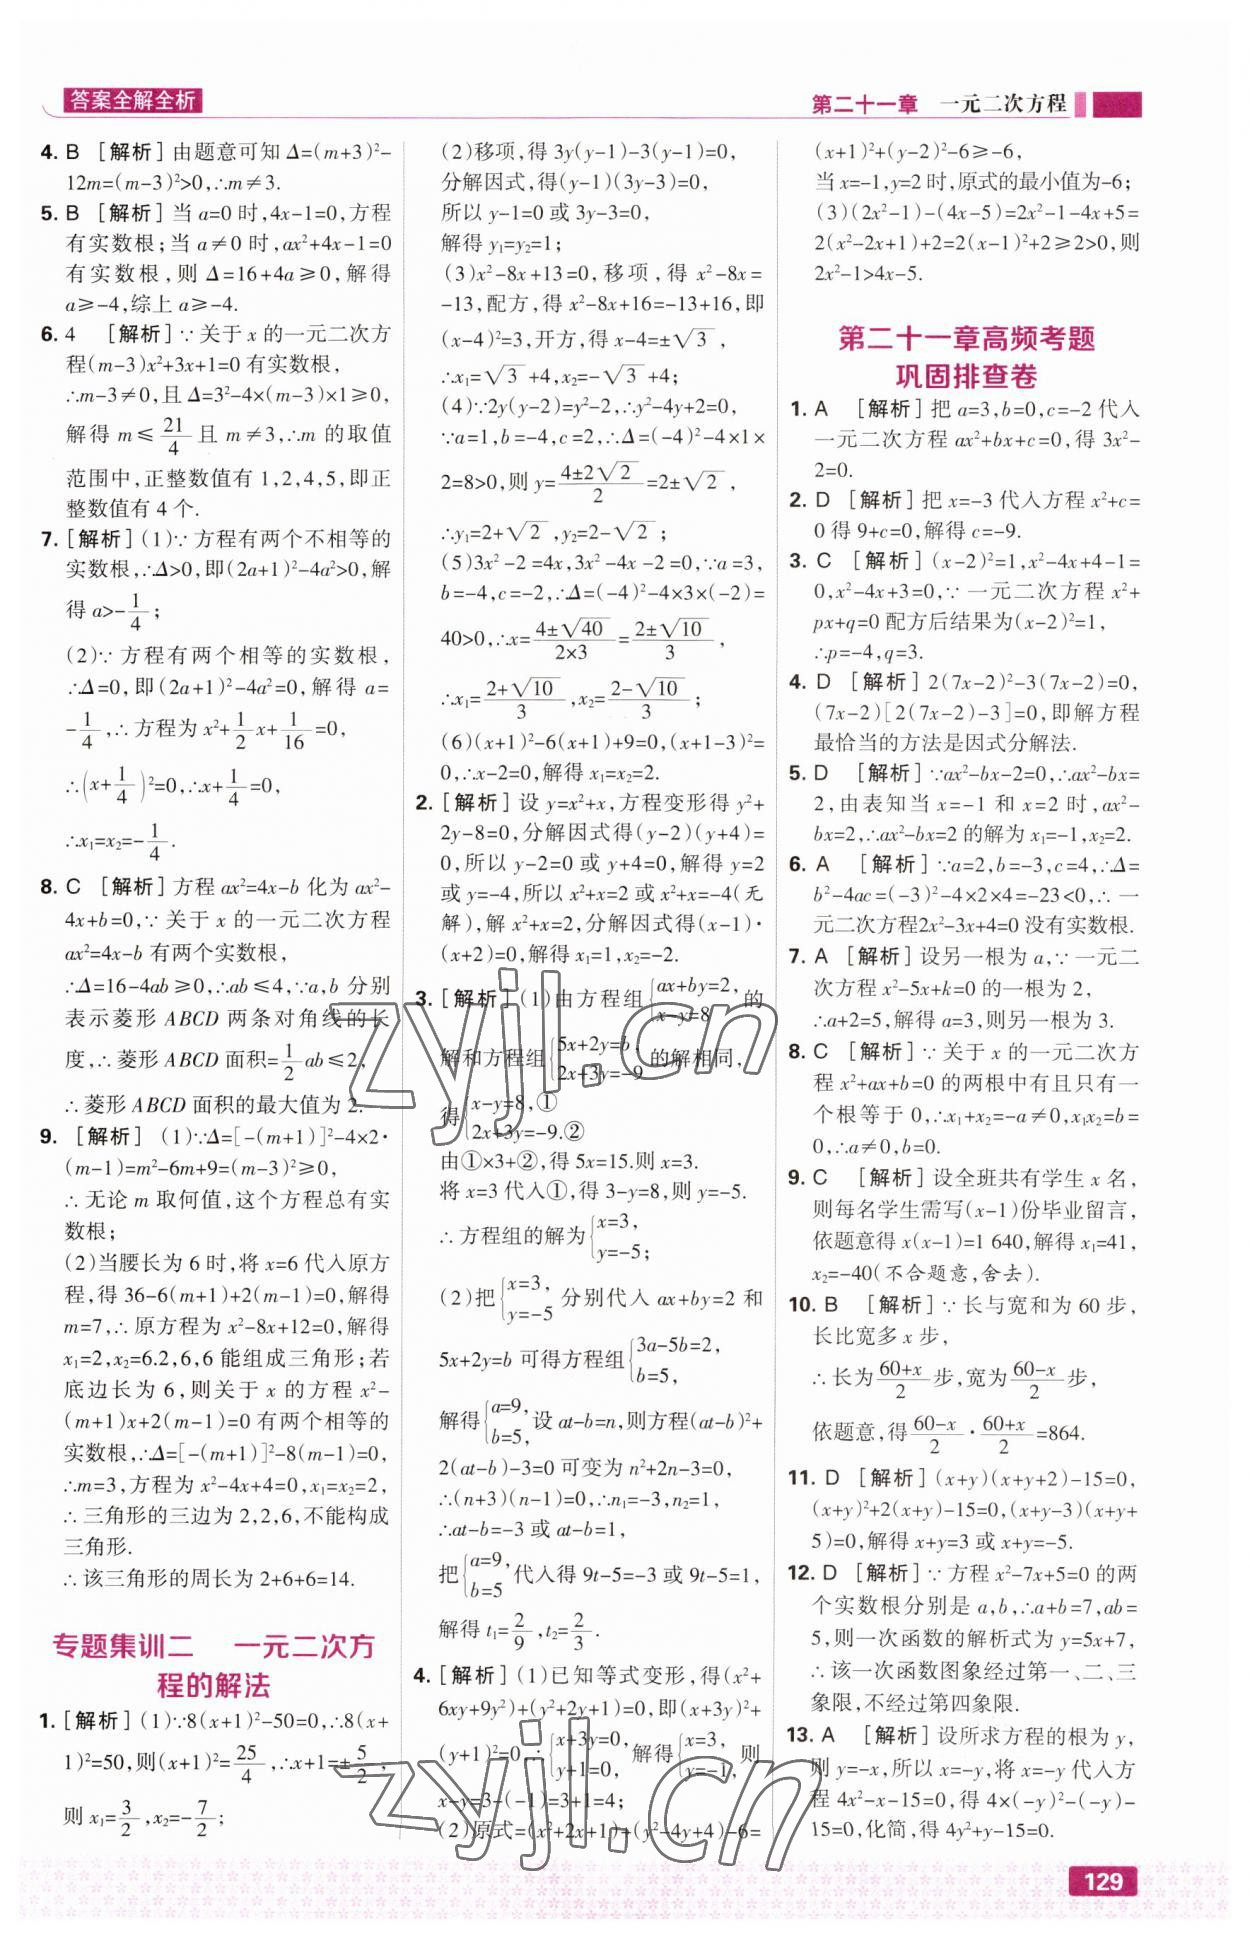 答案全解全析
第二十一章 一元二次方程
4. B [解析]由题意可知 Δ=(m+3)²-
12m=(m-3)²>0,∴m≠3.
5. B [解析]当 a=0 时,4x-1=0,方程
有实数根;当 a≠0 时,ax²+4x-1=0
有实数根,则 Δ=16+4a≥0,解得
a≥-4,综上 a≥-4.
6. 4 [解析]∵关于 x 的一元二次方
程(m-3)x²+3x+1=0 有实数根,
∴m-3≠0,且 Δ=3²-4×(m-3)×1≥0,
解得 m≤21/4 且 m≠3,∴m 的取值
范围中,正整数值有 1,2,4,5,即正
整数值有 4 个.
7. [解析](1)∵方程有两个不相等的
实数根,∴Δ>0,即(2a+1)²-4a²>0,解
得 a>-1/4;
(2)∵方程有两个相等的实数根,
∴Δ=0,即(2a+1)²-4a²=0,解得 a=
-1/4,∴方程为 x²+1/2x+1/16=0,
∴(x+1/4)²=0,∴x+1/4=0,
∴x₁=x₂=-1/4.
8. C [解析]方程 ax²=4x-b 化为 ax²-
4x+b=0,∵关于 x 的一元二次方程
ax²=4x-b 有两个实数根,
∴Δ=16-4ab≥0,∴ab≤4,∵a,b 分别
表示菱形 ABCD 两条对角线的长
度,∴菱形 ABCD 面积=1/2ab≤2,
∴菱形 ABCD 面积的最大值为 2.
9. [解析] (1)∵Δ=[-(m+1)]²-4×2·
(m-1)=m²-6m+9=(m-3)²≥0,
∴无论 m 取何值,这个方程总有实
数根;
(2)当腰长为 6 时,将 x=6 代入原方
程,得 36-6(m+1)+2(m-1)=0,解得
m=7,∴原方程为 x²-8x+12=0,解得
x₁=2,x₂=6.2,6,6 能组成三角形;若
底边长为 6,则关于 x 的方程 x²-
(m+1)x+2(m-1)=0 有两个相等的
实数根,∴Δ=[-(m+1)]²-8(m-1)=0,
∴m=3,方程为 x²-4x+4=0,x₁=x₂=2,
∴三角形的三边为 2,2,6,不能构成
三角形.
∴该三角形的周长为 2+6+6=14.
专题集训二 一元二次方
程的解法
1. [解析](1)∵8(x+1)²-50=0,∴8(x+
1)²=50,则(x+1)²=25/4,∴x+1=±5/2,
则 x₁=3/2,x₂=-7/2;
(2)移项,得 3y(y-1)-3(y-1)=0,
分解因式,得(y-1)(3y-3)=0,
所以 y-1=0 或 3y-3=0,
解得 y₁=y₂=1;
(3)x²-8x+13=0,移项,得 x²-8x=
-13,配方,得 x²-8x+16=-13+16,即
(x-4)²=3,开方,得 x-4=±√3,
∴x₁=√3+4,x₂=-√3+4;
(4)∵2y(y-2)=y²-2,∴y²-4y+2=0,
∵a=1,b=-4,c=2,∴Δ=(-4)²-4×1×
2=8>0,则 y=(4±2√2)/2=2±√2,
∴y₁=2+√2,y₂=2-√2;
(5)3x²-2=4x,3x²-4x-2=0,∵a=3,
b=-4,c=-2,∴Δ=(-4)²-4×3×(-2)=
40>0,∴x=(4±√40)/(2×3)=(2±√10)/3,
∴x₁=(2+√10)/3,x₂=(2-√10)/3;
(6)(x+1)²-6(x+1)+9=0,(x+1-3)²=
0,∴x-2=0,解得 x₁=x₂=2.
2. [解析]设 y=x²+x,方程变形得 y²+
2y-8=0,分解因式得(y-2)(y+4)=
0,所以 y-2=0 或 y+4=0,解得 y=2
或 y=-4,所以 x²+x=2 或 x²+x=-4(无
解),解 x²+x=2,分解因式得(x-1)·
(x+2)=0,解得 x₁=1,x₂=-2.
3. [解析](1)由方程组{ax+by=2, x-y=8 的
解和方程组{5x+2y=b, 2x+3y=-9 的解相同,
得{x-y=8,① 2x+3y=-9.②
由①×3+②,得 5x=15.则 x=3.
将 x=3 代入①,得 3-y=8,则 y=-5.
∴方程组的解为{x=3, y=-5;
(2)把{x=3, y=-5 分别代入 ax+by=2 和
5x+2y=b 可得方程组{3a-5b=2, b=5,
解得{a=9, b=5, 设 at-b=n,则方程(at-b)²+
2(at-b)-3=0 可变为 n²+2n-3=0,
∴(n+3)(n-1)=0,∴n₁=-3,n₂=1,
∴at-b=-3 或 at-b=1,
把{a=9, b=5 代入得 9t-5=-3 或 9t-5=1,
解得 t₁=2/9,t₂=2/3.
4. [解析](1)已知等式变形,得(x²+
6xy+9y²)+(y²+2y+1)=0,即(x+3y)²+
(y+1)²=0,∴{x+3y=0, y+1=0, 解得{x=3, y=-1, 则
x-y=3-(-1)=3+1=4;
(2)原式=(x²+2x+1)+(y²-4y+4)-6=
(x+1)²+(y-2)²-6≥-6,
当 x=-1,y=2 时,原式的最小值为-6;
(3)(2x²-1)-(4x-5)=2x²-1-4x+5=
2(x²-2x+1)+2=2(x-1)²+2≥2>0,则
2x²-1>4x-5.
第二十一章高频考题
巩固排查卷
1. A [解析]把 a=3,b=0,c=-2 代入
一元二次方程 ax²+bx+c=0,得 3x²-
2=0.
2. D [解析]把 x=-3 代入方程 x²+c=
0 得 9+c=0,解得 c=-9.
3. C [解析](x-2)²=1,x²-4x+4-1=
0,x²-4x+3=0,∵一元二次方程 x²+
px+q=0 配方后结果为(x-2)²=1,
∴p=-4,q=3.
4. D [解析]2(7x-2)²-3(7x-2)=0,
(7x-2)[2(7x-2)-3]=0,即解方程
最恰当的方法是因式分解法.
5. D [解析]∵ax²-bx-2=0,∴ax²-bx=
2,由表知当 x=-1 和 x=2 时,ax²-
bx=2,∴ax²-bx=2 的解为 x₁=-1,x₂=2.
6. A [解析]∵a=2,b=-3,c=4,∴Δ=
b²-4ac=(-3)²-4×2×4=-23<0,∴一
元二次方程2x²-3x+4=0 没有实数根.
7. A [解析]设另一根为 a,∵一元二
次方程 x²-5x+k=0 的一根为 2,
∴a+2=5,解得 a=3,则另一根为 3.
8. C [解析]∵关于 x 的一元二次方
程 x²+ax+b=0 的两根中有且只有一
个根等于 0,∴x₁+x₂=-a≠0,x₁x₂=b=
0,∴a≠0,b=0.
9. C [解析]设全班共有学生 x 名,
则每名学生需写(x-1)份毕业留言,
依题意得 x(x-1)=1 640,解得 x₁=41,
x₂=-40(不合题意,舍去).
10. B [解析]∵长与宽和为 60 步,
长比宽多 x 步,
∴长为(60+x)/2步,宽为(60-x)/2步,
依题意,得(60-x)/2·(60+x)/2=864.
11. D [解析](x+y)(x+y+2)-15=0,
(x+y)²+2(x+y)-15=0,(x+y-3)(x+y+
5)=0,解得 x+y=3 或 x+y=-5.
12. D [解析]∵方程 x²-7x+5=0 的两
个实数根分别是 a,b,∴a+b=7,ab=
5,则一次函数的解析式为 y=5x+7,
∴该一次函数图象经过第一、二、三
象限,不经过第四象限.
13. A [解析]设所求方程的根为 y,
则 y=-x,所以 x=-y,将 x=-y 代入方
程 4x²-x-15=0,得 4×(-y)²-(-y)-
15=0,化简,得 4y²+y-15=0.
129
zyjl.cn
zyjl.cn